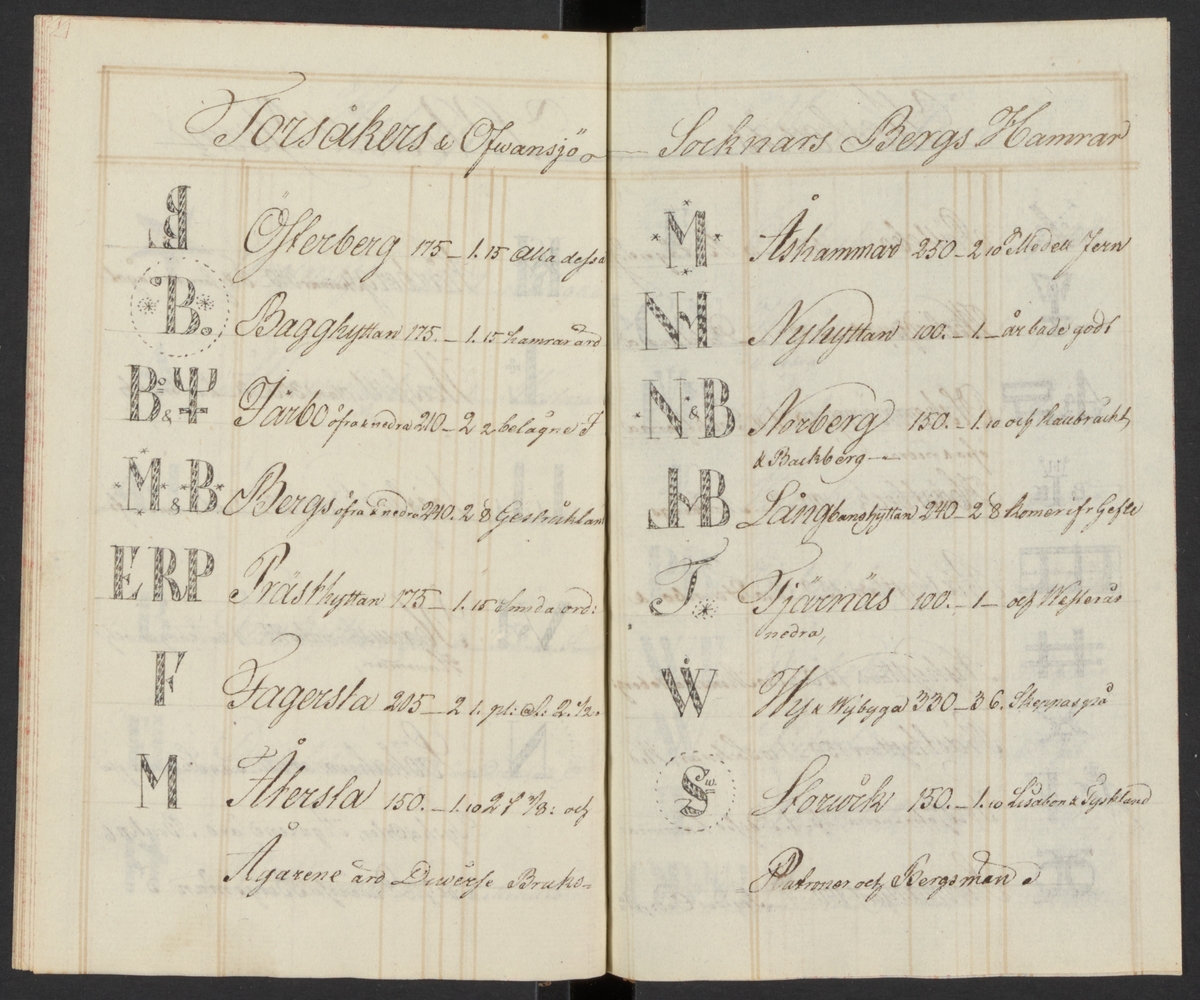 Torsåkers & Ofwansjö
Österberg 175 – 1. 15 Alla dessa
B. Bagghyttan 175. – 1. 15 hamrar ärd
Bo & Järbo öfra & nedra 210 – 2 2 belägne J
M & B Bergs öfra & nedra 240. 2 8 Gestrikland
ERP Prästhyttan 175 – 1. 15 Smida ord:
F Fagersta 205 – 2 1. pl: at: 2. 1/2.
M Återsta 150. – 1. 10 2 och
Ägarene ärd Diwerse Bruks-
Socknars Bergs Hamrar
M Åshammar 250 – 2 10 Medell Jern
NH Nyhyttan 100. – 1. – är både godt
N & B Norberg 150. – 1. 10 och kallbräckt,
& Backberg –
HB Långbanshyttan 240 – 2 8 komer ifr Gefle
T. Tjärnäs 100. – 1 – och Westerås
nedra,
W Wij & Wijbyga 330 – 3 6. Skeppas på
S w. Storwik 150. – 1. 10 Lisabon & Tyskland
Patroner och Bergsmän